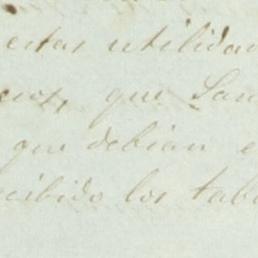 estas utilidad
que San
que debian e
cibido los taba